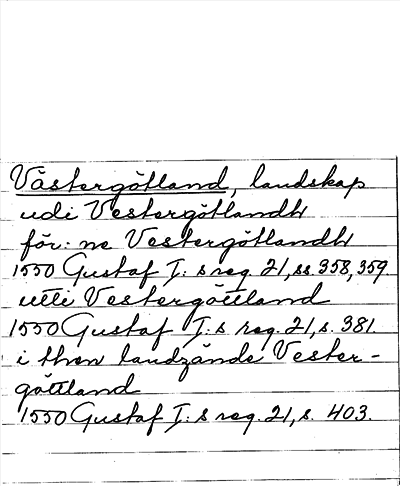 Västergötland, landskap
udi Vestergötlandh
för: ne Vestergötlandh
1550 Gustaf I: s reg. 21, ss. 358, 359
utti Vestergöttland
1550 Gustaf I: s reg. 21, s. 381
i then landzände Vester-
göttland
1550 Gustaf I: s reg. 21, s. 403.